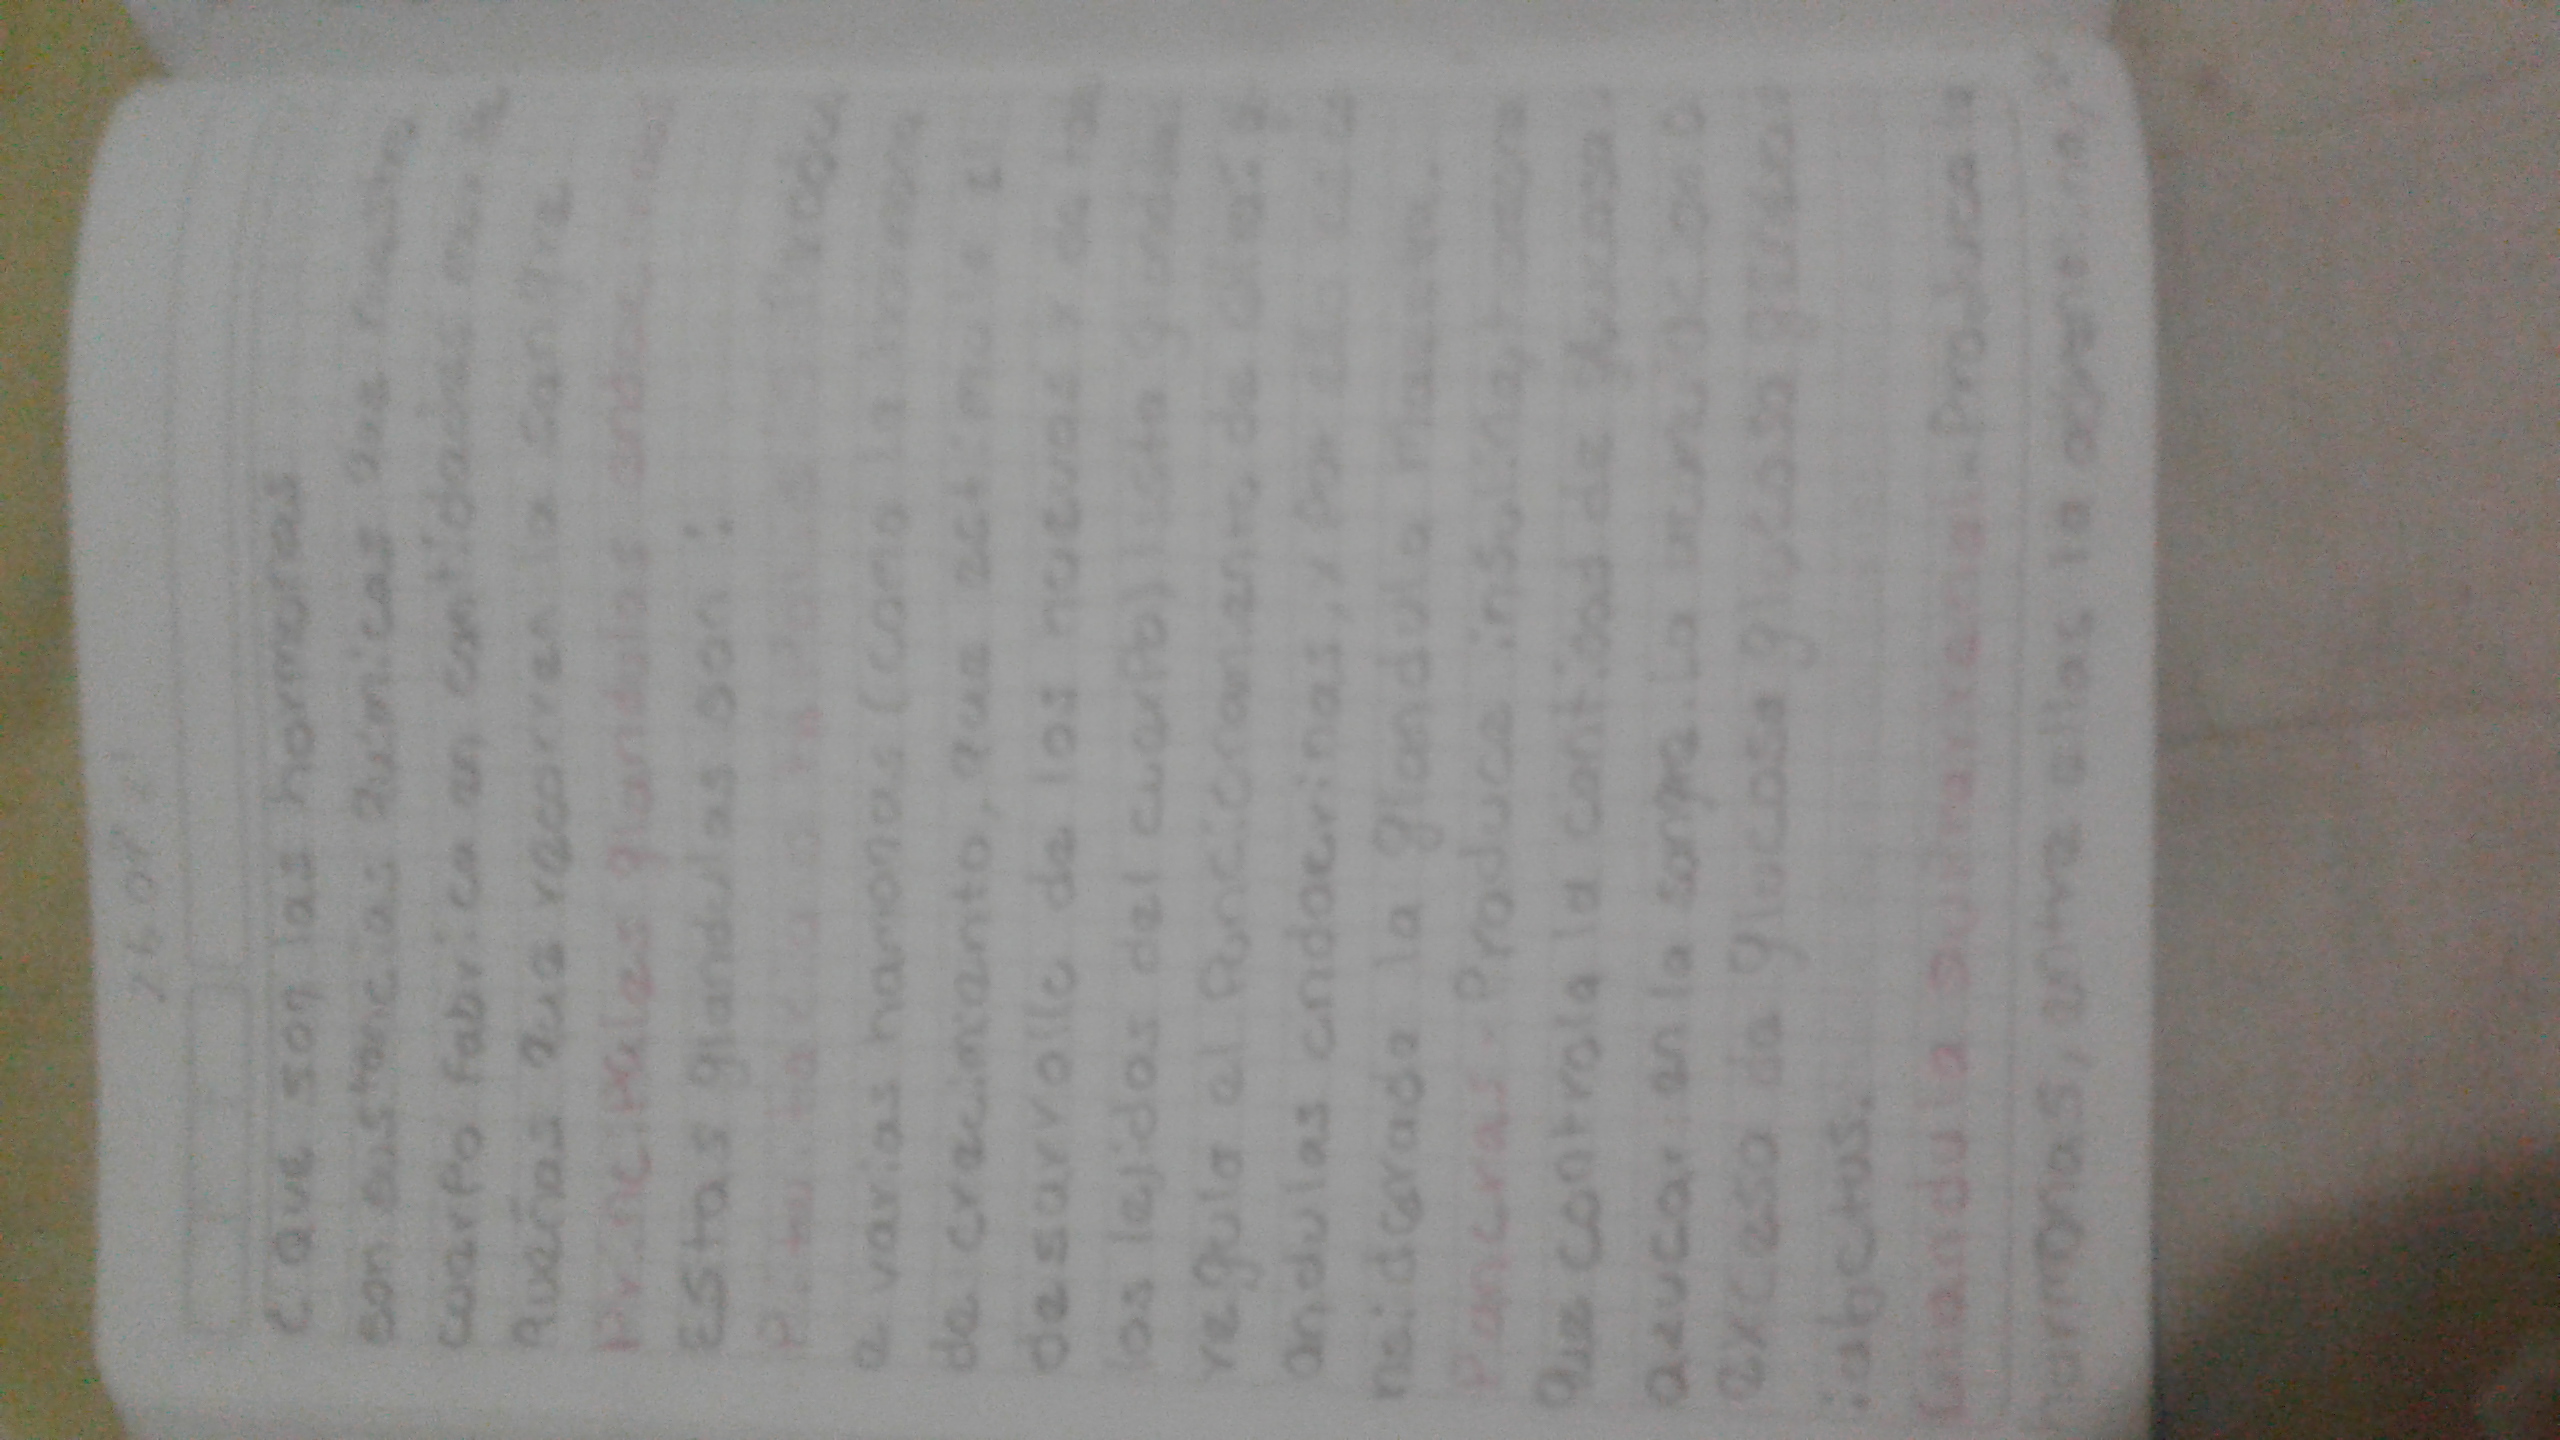 ¿ que son las hormonas
son sustancias quimicas que nuestro
cuerpo fabrica en cantidades muy
queñas que recorren la sangre
Principales glandulas endocrinas
Estas glandulas son:
Produc
e varias hormonas (como la hormona
de crecimiento, que estimula el
desarrollo de los huevos y de to
los tejidos del cuerpo) esta glandula
regula el funcionamiento de otras gl
andulas endocrinas, y por
nsiderada la glandula maestra.
Pancreas. Produce insulina, hormona
que controla la cantidad de glucosa
azucar en la sangre. La
exceso de glucosa glucosa glucosa
iabetes.
Glandula suprarrenal. Produce
hormonas, entre ellas la